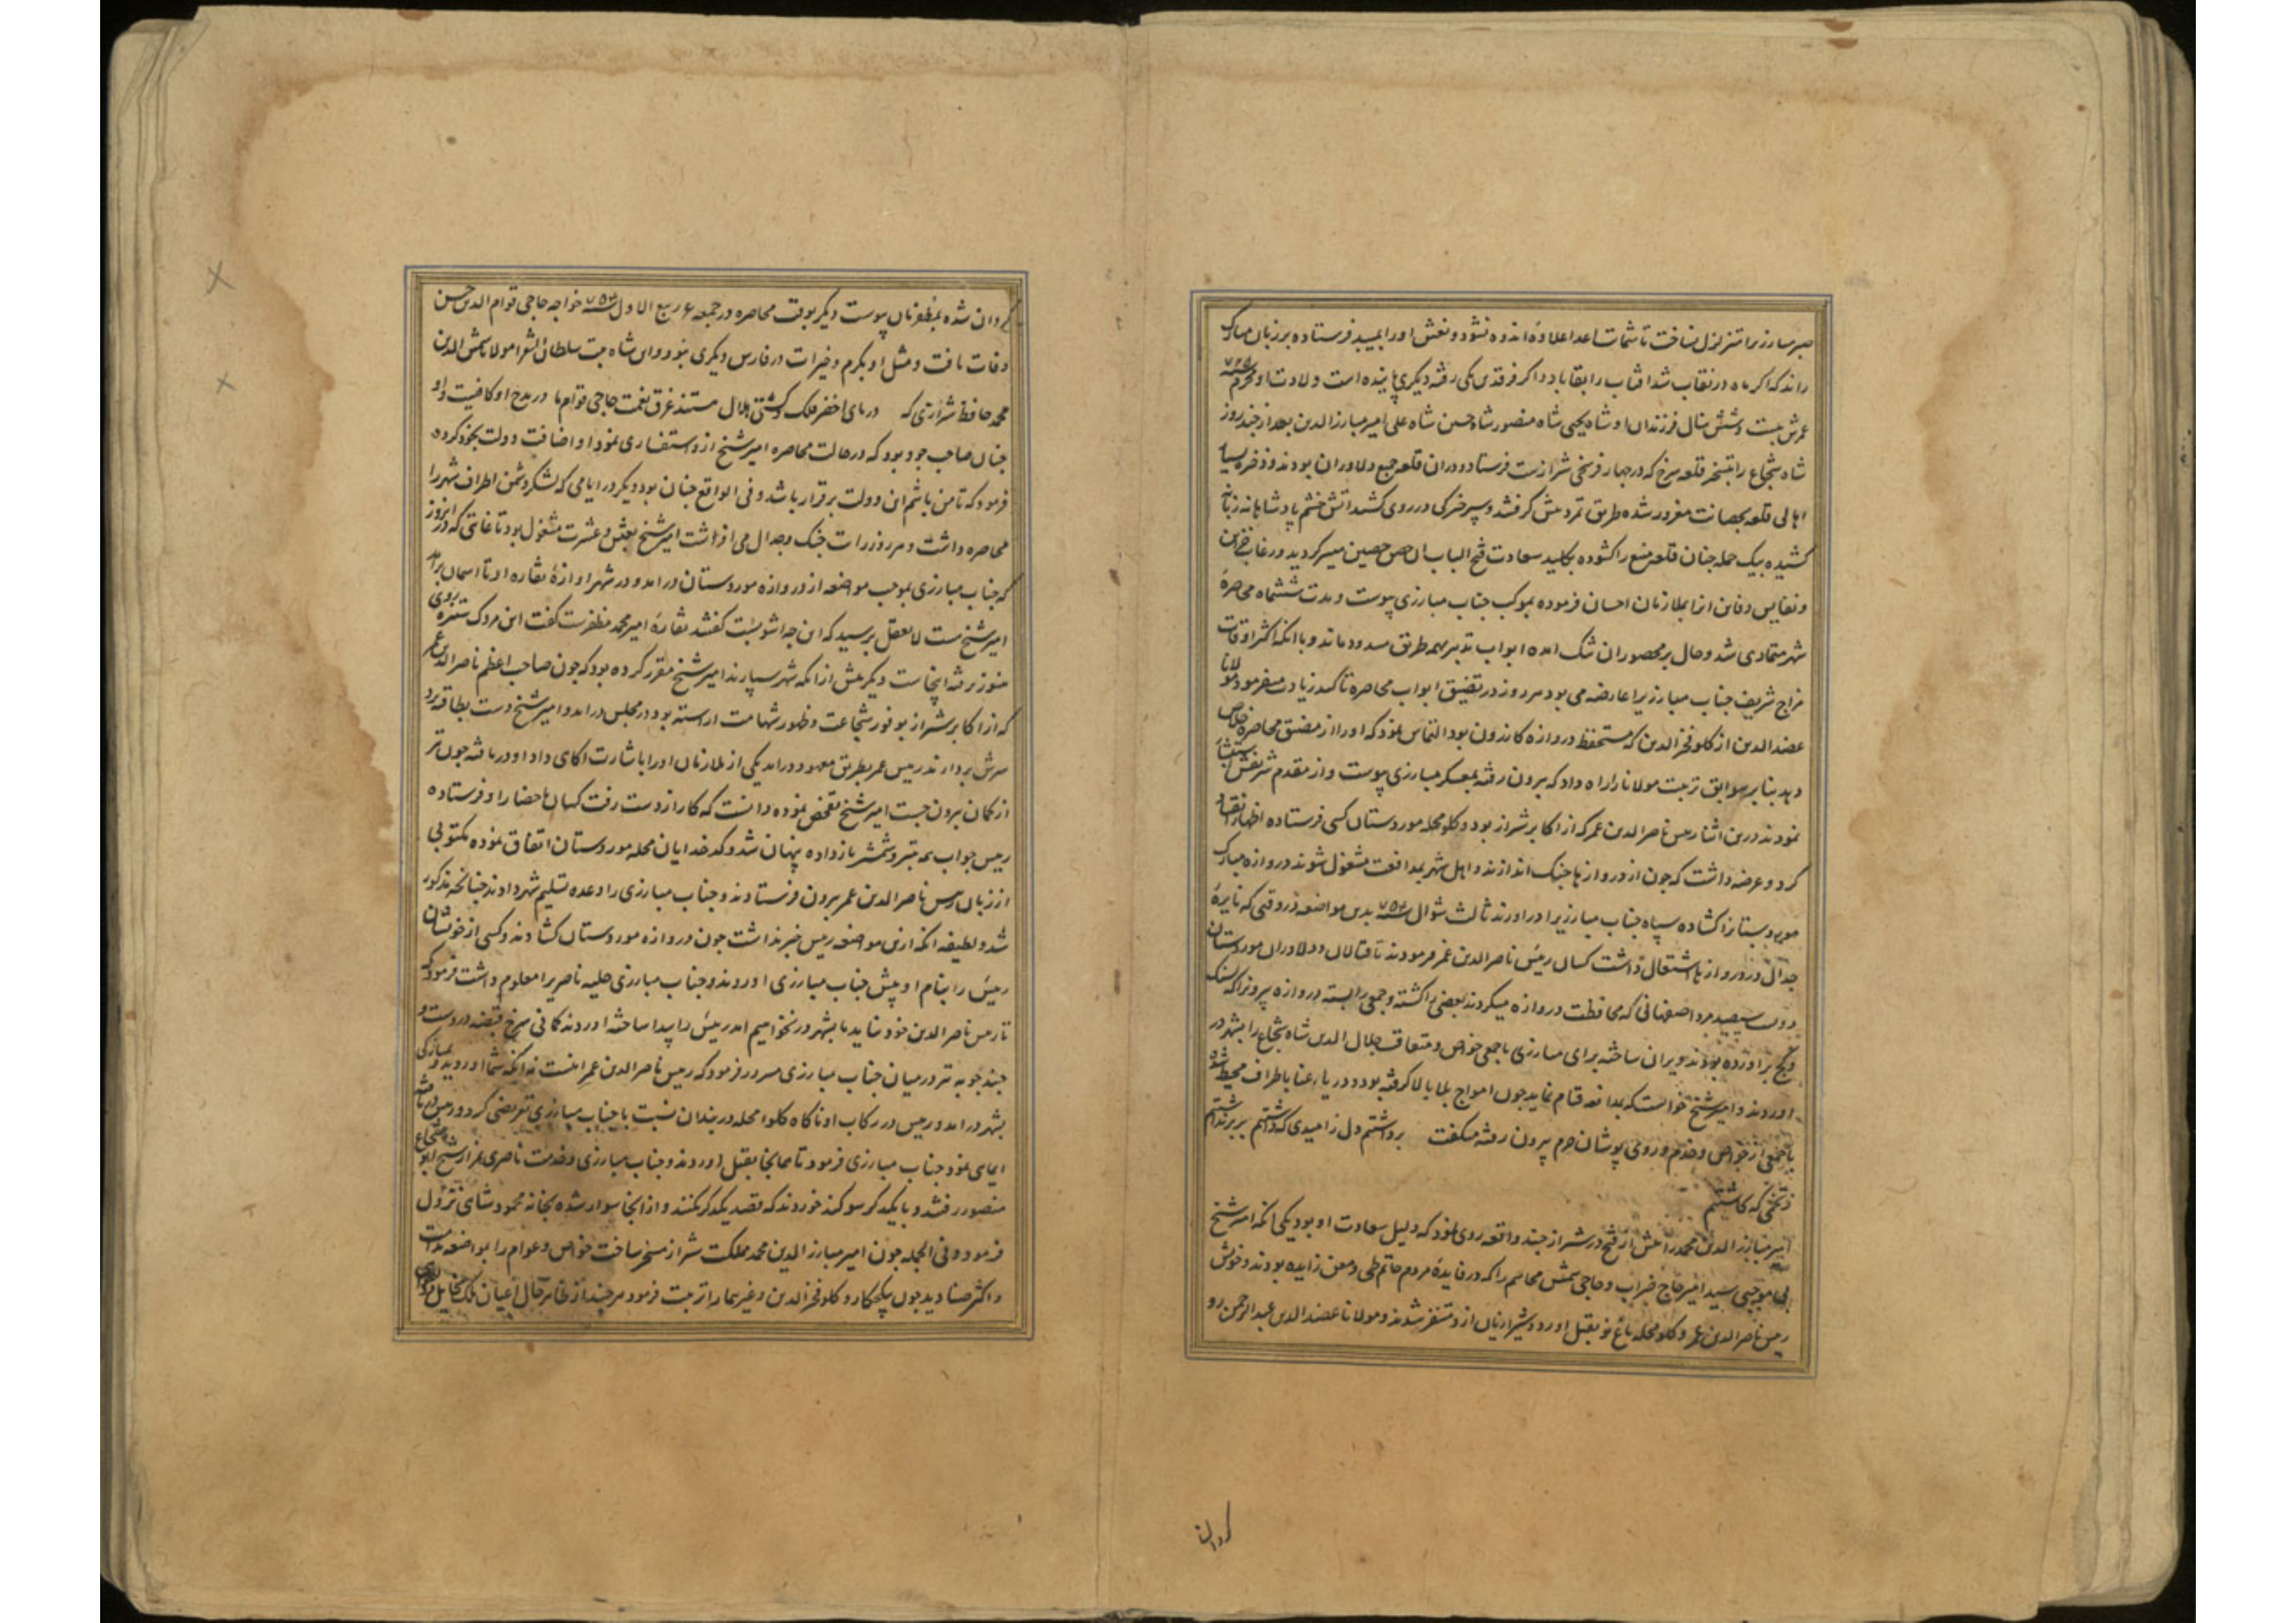 صبر مبارزیرا متزلزل نساخت تا شماتت اعدا علاوهٔ اندوه نشود و نعش او را بمیبد فرستاده بر زبان مبارک
راند که اکر ماه در نقاب شد افتاب را بقا باد و اکر فرقدین یکی رفته دیکری پاینده است ولادت او محرم ۷۲۵
عمرش بیست و شش سال فرزندان او شاه یحیی شاه منصور شاه حسین شاه علی امیر مبارزالدین بعد از چند روز
شاه شجاع را بتسخیر قلعه سرخ که در چهار فرسخی شیرازست فرستاد و در ان قلعه جمع دلاوران بودند و ذخیره بسیار
اهالی قلعه بحصانت مغرور شده طریق تمرد پیش کرفتند و سپر خیرکی در روی کشید اتش خشم پادشاهانه زبانه
کشیده بیک حمله چنان قلعه منیع را کشوده بکلید سعادت فتح الباب ان حصن حصین میسر کردید و رغایب خزاین
و نفایس دفاین انرا بملازمان احسان فرموده بموکب جناب مبارزی پیوست و مدت ششماه محاصرهٔ
شهر متمادی شد و حال بر محصوران تنک امده ابواب تدبیر بهمه طریق مسدود ماند و با انکه اکثر اوقات
مزاج شریف جناب مبارزیرا عارضه می بود هر روز در تضییق ابواب محاصره تاکید زیادت میفرمود مولانا
عضدالدین از کلو فخرالدین که مستحفظ دروازه کازرون بود التماس نمود که او را از مضیق محاصره خلاص
دهد بنابر سوابق تربیت مولانا را راه داد که بیرون رفته بمعسکر مبارزی پیوست و از مقدم شریفش استبشار
نمودند درین اثنا رییس ناصرالدین عمر که از اکابر شیراز بود و کلو محله موردستان کسی فرستاده اظهار انقیاد
کرد و عرضه داشت که چون از دروازها جنک اندازند و اهل شهر بمدافعت مشغول شوند دروازه مبارک
موردستانرا کشاده سپاه جناب مبارزیرا دراورند ثالث شوال ۷۵۴ بدین مواضعه در وقتی که نایرهٔ
جدال در دروازها اشتعال داشت کسان رییس ناصرالدین عمر فرمودند تا قتالان و دلاوران موردستان
مرد اصفهانی که محافظت دروازه میکردند بعضی را کشته و جمعی را بسته دروازه بیرونرا که بسنک
و کج براورده بودند ویران ساخته برای مبارزی با جمعی خواص و متعاقب جلال الدین شاه شجاع را بشهر در
اوردند و امیر شیخ خواست که بمدافعه قیام نماید چون امواج بلا بالا کرفته بود و دریاء عنا باطراف محیط شده
با جمعی از خواص و خدم و روی پوشان حرم بیرون رفته میکفت برداشتم دل ز امیدی که داشتم بر برنداشتم
ز تخمی که کاشتم
امیر مبارزالدین محمد را پیش از فتح در شیراز چند واقعه روی نمود که دلیل سعادت او بود یکی انکه امیر شیخ
بی موجبی سید امیر حاج ضراب و حاجی شمس محاسم را که در فایدهٔ مردم حاتم طی و معن زایده بودند و خویش
رییس ناصرالدین عمر و کلو محله باغ نو بقتل اورد و شیرازیان ازو متنفر شدند و مولانا عضدالدین عبدالرحمن رو
کردان
کردان شده بمظفریان پیوست دیکر بوقت محاصره در جمعه ۶ ربیع الاول ۷۵۴ خواجه حاجی قوام الدین حسن
وفات یافت و مثل او بکرم و خیرات در فارس دیکری نبود و این شاه بیت سلطان الشعرا مولانا شمس الدین
محمد حافظ شیرازی که دریای اخضر فلک و کشتی هلال هستند غرق نعمت حاجی قوام ما در مدح او کافیست و او
چنان صاحب جود بود که در حالت محاصره امیر شیخ ازو استفساری نمود او اضافت دولت بخود کرده
فرمود که تا من باشم این دولت برقرار باشد و فی الواقع چنان بود و دیکر در ایامی که لشکر دشمن اطراف شهر را
محاصره داشت و هر روز رایت جنک و جدال می افراشت امیر شیخ بعیش و عشرت مشغول بود تا غایتی که در انروز
که جناب مبارزی بموجب مواضعه از دروازه موردستان درامد و در شهر اوازهٔ نقاره او تا اسمان برامد
امیر شیخ مست لایعقل پرسید که این چه اشوبست کفتند نقارهٔ امیر محمد مظفرست کفت این مردک ستیزه روی
هنوز نرفته اینجاست و دیکر پیش از انکه شهر بسپارند امیر شیخ مقرر کرده بود که چون صاحب اعظم ناصرالدین عمر
که از اکابر شیراز بوفور شجاعت و ظهور شهامت اراسته بود در مجلس دراید و امیر شیخ دست بطاقیه برد
سرش بردارند رییس عمر بطریق معهود درامد یکی از ملازمان او را باشارت اکاهی داد او دریافته چون تیر
از کمان بیرون جست امیر شیخ تفحص نموده دانست که کار از دست رفت کسان باحضار او فرستاده
رییس جواب همه بتیر و شمشیر باز داده پنهان شد و کدخدایان محله موردستان اتفاق نموده مکتوبی
از زبان رییس ناصرالدین عمر بیرون فرستادند و جناب مبارزی را وعده تسلیم شهر دادند چنانچه مذکور
شد و لطیفه انکه ازین مواضعه رییس خبر نداشت چون دروازه موردستان کشادند و کسی از خویشان
رییس را بنام او پیش جناب مبارزی اوردند و جناب مبارزی حلیه ناصر را معلوم داشت فرمود که
تا رییس ناصرالدین خود نیاید ما بشهر در نخواهیم امد رییس را پیدا ساخته اوردند کمانی سرخ قبضه در دست و
چند چوبه تیر در میان جناب مبارزی مسرور فرمود که رییس ناصرالدین عمر اینست نه انکه شما اوردید و بمبارکی
بشهر درامد و رییس در رکاب او ناکاه کلوا محله دربندان نسبت با جناب مبارزی تعرضی کرد و رییس دریافته
ایمایی نمود جناب مبارزی فرمود تا همانجا بقتل اوردند و جناب مبارزی و خدمت ناصری بمزار شیخ ابو شجاع
منصور رفتند و با یکدیکر سوکند خوردند که قصد یکدیکر نکنند و از انجا سوار شده بخانه محمود شاهی نزول
فرمود و فی الجمله چون امیر مبارزالدین محمد مملکت شیراز مسخر ساخت خواص و عوام را بمواضعه
و اکثر صنادید چون پهلو و کلو فخرالدین و غیرهما را تربیت فرمود هر چند از ظاهر حال اعیان ملک